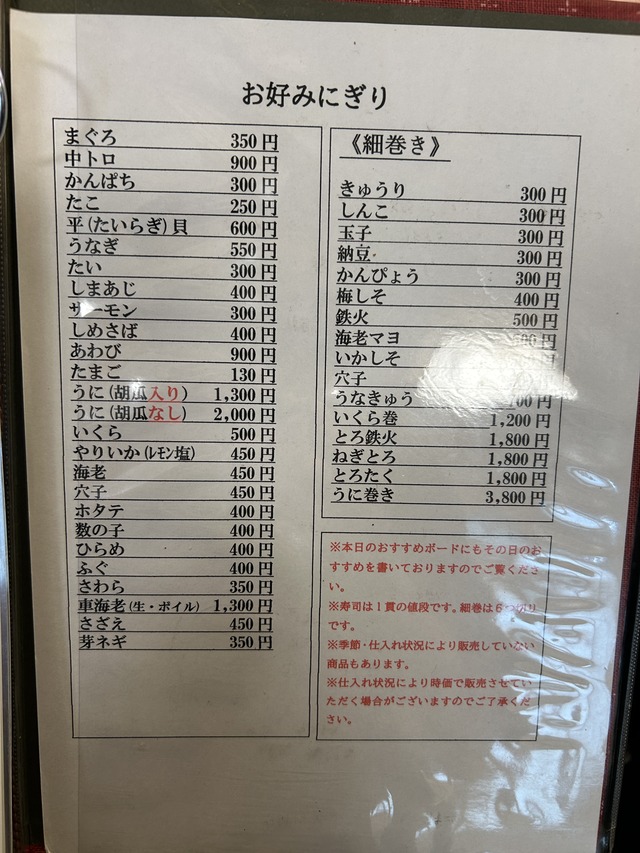 お好みにぎり
まぐろ 350円
中トロ 900円
かんぱち 300円
たこ 250円
平(たいらぎ)貝 600円
うなぎ 550円
たい 300円
しまあじ 400円
サーモン 300円
しめさば 400円
あわび 900円
たまご 130円
うに(胡瓜入り) 1,300円
うに(胡瓜なし) 2,000円
いくら 500円
やりいか(レモン塩) 450円
海老 450円
穴子 450円
ホタテ 400円
数の子 400円
ひらめ 400円
ふぐ 400円
さわら 350円
車海老(生・ボイル) 1,300円
さざえ 450円
芽ネギ 350円
《細巻き》
きゅうり 300円
しんこ 300円
玉子 300円
納豆 300円
かんぴょう 300円
梅しそ 400円
鉄火 500円
海老マヨ 円
いかしそ
穴子
うなきゅう 円
いくら巻 1,200円
とろ鉄火 1,800円
ねぎとろ 1,800円
とろたく 1,800円
うに巻き 3,800円
※本日のおすすめボードにもその日のお
すすめを書いておりますのでご覧くださ
い。
※寿司は1貫の値段です。細巻は6つ切り
です。
※季節・仕入れ状況により販売していない
商品もあります。
※仕入れ状況により時価で販売させてい
ただく場合がございますのでご了承くだ
さい。